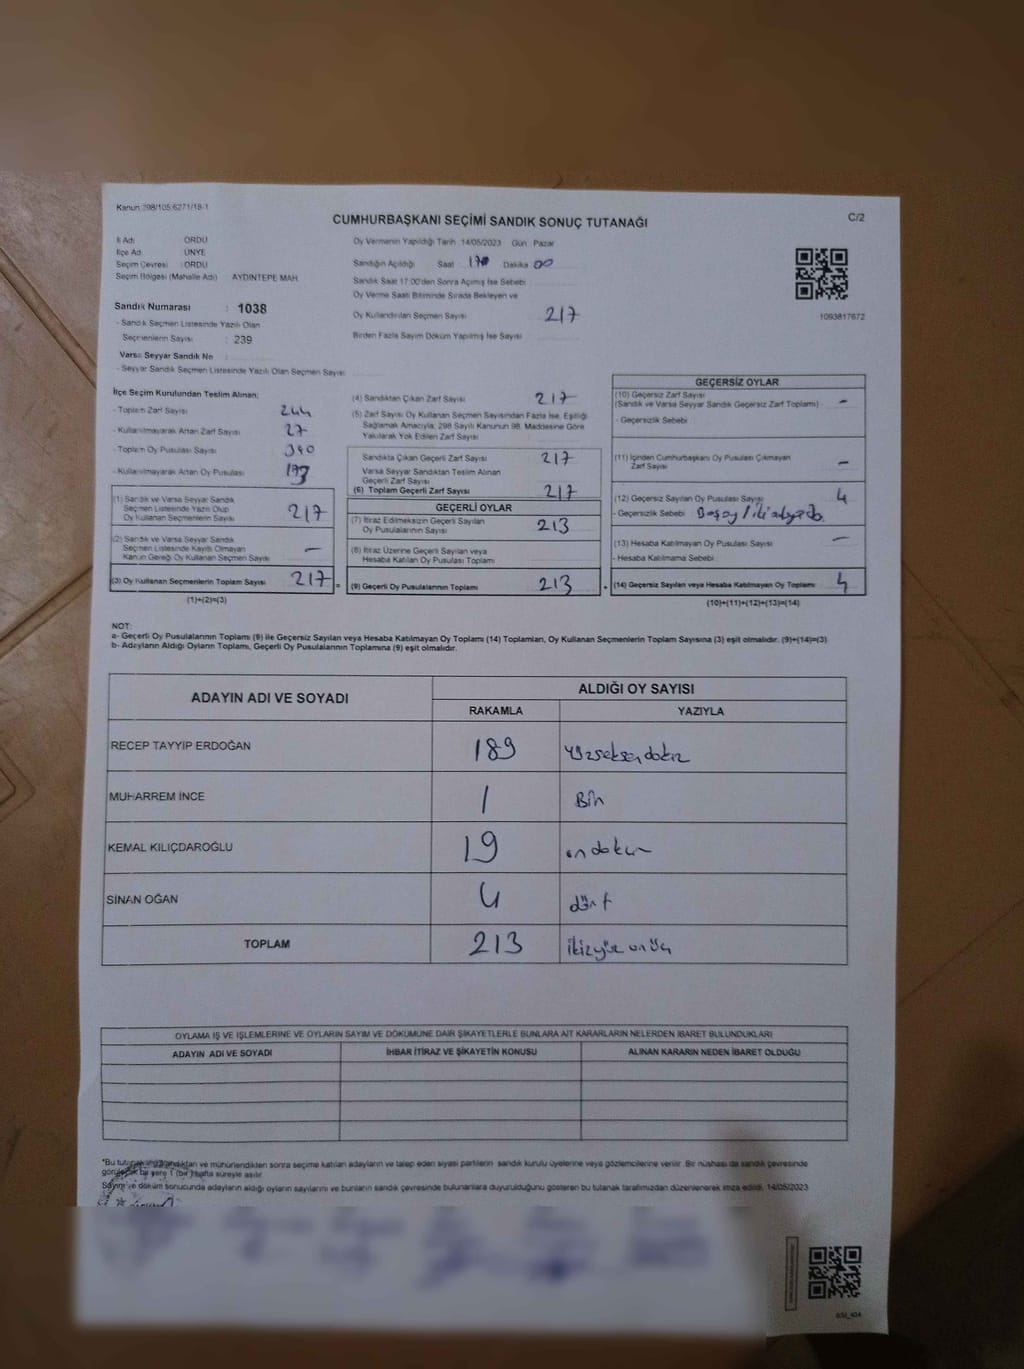 Kanun:298/105;6271/18-1
CUMHURBAŞKANI SEÇİMİ SANDIK SONUÇ TUTANAĞI
C/2
İl Adı: ORDU
İlçe Adı: ÜNYE
Seçim Çevresi :ORDU
Seçim Bölgesi (Mahalle Adı) AYDINTEPE MAH.
Sandık Numarası : 1038
- Sandık Seçmen Listesinde Yazılı Olan
Seçmenlerin Sayısı : 239
Varsa Seyyar Sandık No :
- Seyyar Sandık Seçmen Listesinde Yazılı Olan Seçmen Sayısı
Oy Vermenin Yapıldığı Tarih :14/05/2023 Gün Pazar
Sandığın Açıldığı Saat Dakika 00
Sandık Saat 17:00'den Sonra Açılmış İse Sebebi
Oy Verme Saati Bitiminde Sırada Bekleyen ve
Oy Kullandırılan Seçmen Sayısı 217
Birden Fazla Sayım Döküm Yapılmış İse Sayısı
1093817672
İlçe Seçim Kurulundan Teslim Alınan;
- Toplam Zarf Sayısı 244
- Kullanılmayarak Artan Zarf Sayısı 27
- Toplam Oy Pusulası Sayısı 390
- Kullanılmayarak Artan Oy Pusulası
(1) Sandık ve Varsa Seyyar Sandık
Seçmen Listesinde Yazılı Olup
Oy Kullanan Seçmenlerin Sayısı 217
(2) Sandık ve Varsa Seyyar Sandık
Seçmen Listesinde Kayıtlı Olmayan
Kanun Gereği Oy Kullanan Seçmen Sayısı –
(3) Oy Kullanan Seçmenlerin Toplam Sayısı 217 =
(1)+(2)=(3)
(4) Sandıktan Çıkan Zarf Sayısı 217
(5) Zarf Sayısı Oy Kullanan Seçmen Sayısından Fazla İse, Eşitliği
Sağlamak Amacıyla; 298 Sayılı Kanunun 98. Maddesine Göre
Yakılarak Yok Edilen Zarf Sayısı
Sandıkta Çıkan Geçerli Zarf Sayısı 217
Varsa Seyyar Sandıktan Teslim Alınan
Geçerli Zarf Sayısı
(6) Toplam Geçerli Zarf Sayısı 217
GEÇERLİ OYLAR
(7) İtiraz Edilmeksizin Geçerli Sayılan
Oy Pusulalarının Sayısı 213
(8) İtiraz Üzerine Geçerli Sayılan veya
Hesaba Katılan Oy Pusulası Toplamı
(9) Geçerli Oy Pusulalarının Toplamı 213 +
GEÇERSİZ OYLAR
(10) Geçersiz Zarf Sayısı
(Sandık ve Varsa Seyyar Sandık Geçersiz Zarf Toplamı) –
- Geçersizlik Sebebi
(11) İçinden Cumhurbaşkanı Oy Pusulası Çıkmayan
Zarf Sayısı –
(12) Geçersiz Sayılan Oy Pusulası Sayısı 4
- Geçersizlik Sebebi
(13) Hesaba Katılmayan Oy Pusulası Sayısı –
- Hesaba Katılmama Sebebi
(14) Geçersiz Sayılan veya Hesaba Katılmayan Oy Toplamı 4
(10)+(11)+(12)+(13)=(14)
NOT:
a- Geçerli Oy Pusulalarının Toplamı (9) ile Geçersiz Sayılan veya Hesaba Katılmayan Oy Toplamı (14) Toplamları, Oy Kullanan Seçmenlerin Toplam Sayısına (3) eşit olmalıdır. (9)+(14)=(3)
b- Adayların Aldığı Oyların Toplamı, Geçerli Oy Pusulalarının Toplamına (9) eşit olmalıdır.
ADAYIN ADI VE SOYADI
ALDIĞI OY SAYISI
RAKAMLA YAZIYLA
RECEP TAYYİP ERDOĞAN 189 yüzseksendokuz
MUHARREM İNCE 1 Bir
KEMAL KILIÇDAROĞLU 19 ondokuz
SİNAN OĞAN 4 dört
TOPLAM 213 ikiyüz onüç
OYLAMA İŞ VE İŞLEMLERİNE VE OYLARIN SAYIM VE DÖKÜMÜNE DAİR ŞİKAYETLERLE BUNLARA AİT KARARLARIN NELERDEN İBARET BULUNDUKLARI
ADAYIN ADI VE SOYADI İHBAR İTİRAZ VE ŞİKAYETİN KONUSU ALINAN KARARIN NEDEN İBARET OLDUĞU
*Bu tutanak ve mühürlendikten sonra seçime katılan adayların ve talep eden siyasi partilerin sandık kurulu üyelerine veya gözlemcilerine verilir. Bir nüshası da sandık çevresinde
görülecek bir yere 1 (bir) hafta süreyle asılır.
Sayım ve döküm sonucunda adayların aldığı oyların sayılarını ve bunların sandık çevresinde bulunanlara duyurulduğunu gösteren bu tutanak tarafımızdan düzenlenerek imza edildi. 14/05/2023